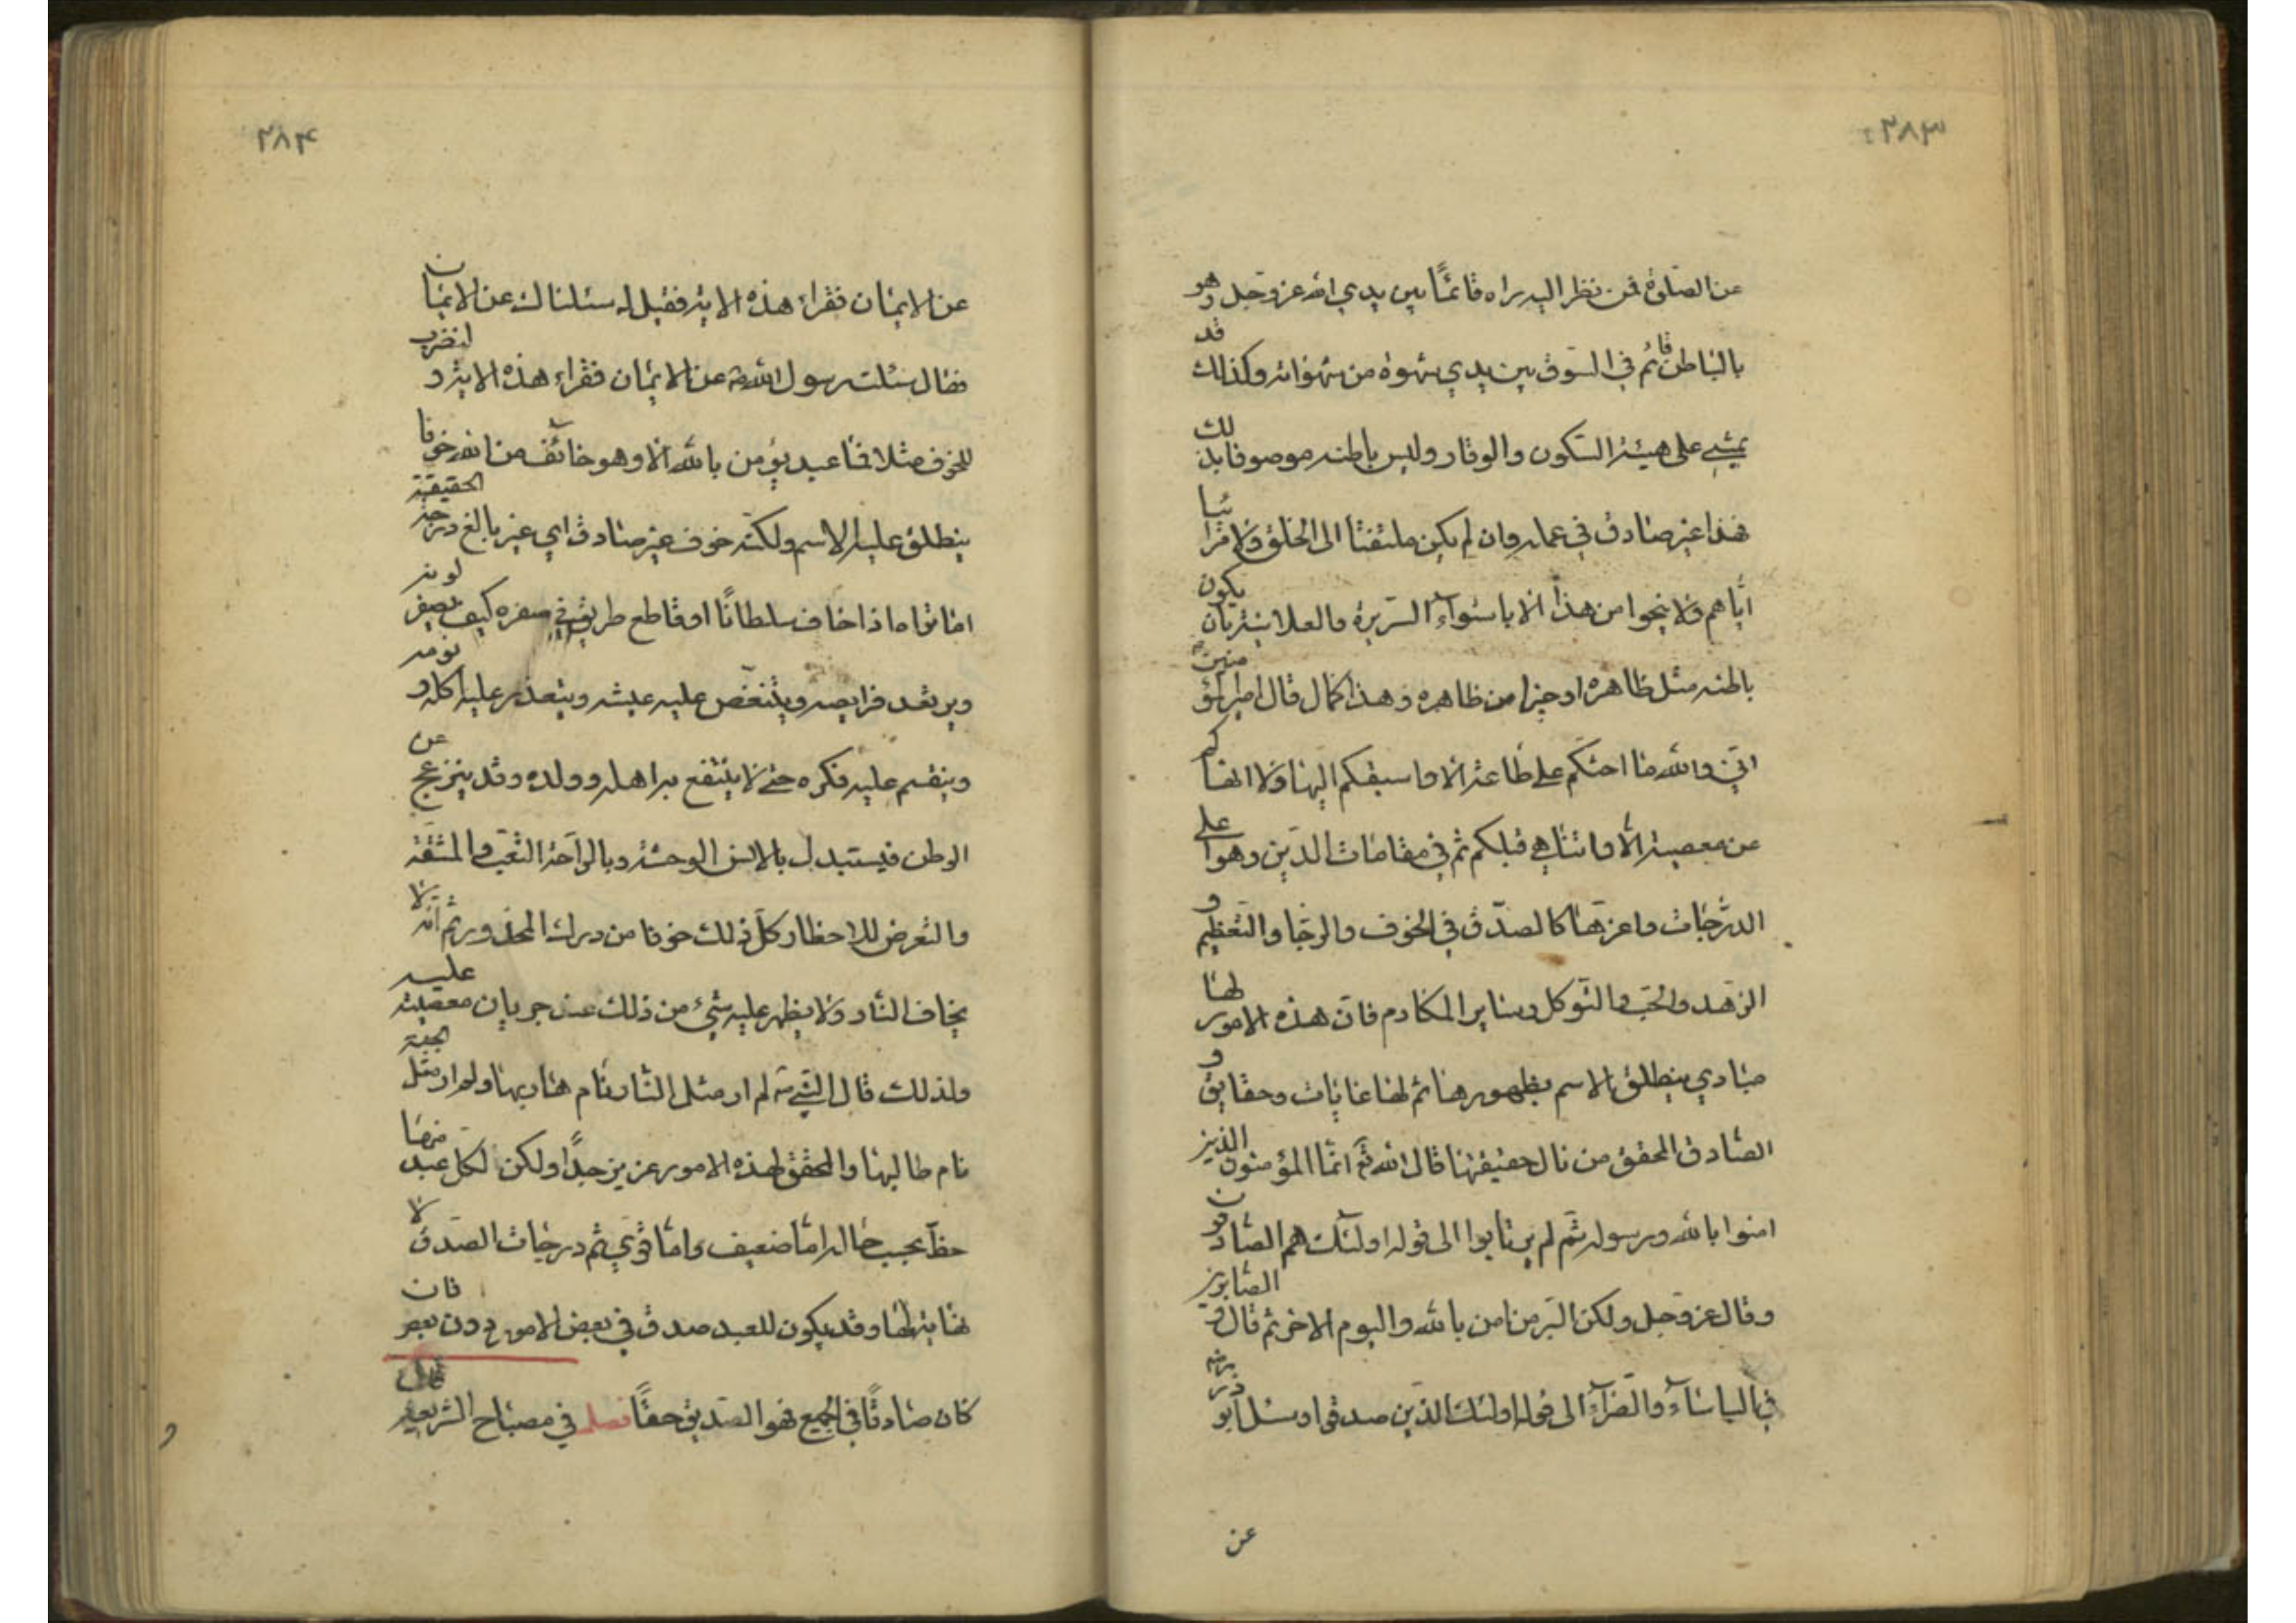 ۲۸۳
عن الصلوة فمن نظر اليه يراه قائمًا بين يدي الله عز وجل وهو
بالباطن قائم في السوق بين يدي شهوة من شهواته وكذلك قد
يمشي على هيئة السكون والوقار وليس باطنه موصوفا بذلك
فهذا غير صادق في عمله وان لم يكن ملتفتا الى الخلق ولا مرائيا
اياهم ولا ينجوا من هذا الا باستواء السريرة والعلانية بان يكون
باطنه مثل ظاهره او خيرا من ظاهره وهذا كما قال امير المؤمنين
اني والله ما احثكم على طاعة الا واسبقكم اليها ولا انهاكم
عن معصية الا واتناهي قبلكم ثم في مقامات الدين وهو اعلى
الدرجات واعزها كالصدق في الخوف والرجا والتعظيم و
الزهد والحب والتوكل وساير المكارم فان هذه الامور لها
مبادي ينطلق الاسم بظهورها ثم لها غايات وحقايق و
الصادق المحقق من نال حقيقتها قال الله تع انما المؤمنون الذين
امنوا بالله ورسوله ثم لم يرتابوا الى قوله اولئك هم الصادقون
وقال عز وجل ولكن البر من امن بالله واليوم الاخر ثم قال والصابرين
في الباساء والضراء الى قوله اولئك الذين صدقوا وسئل ابوذر رض
عن
۲۸۴
عن الايمان فقراء هذه الاية فقيل له سئلناك عن الايمان
فقال سئلت رسول الله ص عن الايمان فقراء هذه الاية ولنضرب
للخوف مثلا فما عبد يؤمن بالله الا وهو خائف من الله خوفا
ينطلق عليه الاسم ولكنه خوف غير صادق اي غير بالغ درجة الحقيقة
اما تراه اذا خاف سلطانًا او قاطع طريق في سفره كيف يصفر لونه
ويرتعد فرايصه ويتنغص عليه عيشه ويتعذر عليه اكله ونومه
وينقسم عليه فكره حتى لا ينتفع به اهله وولده وقد ينزعج عن
الوطن فيستبدل بالانس الوحشة وبالراحة التعب والمشقة
والتعرض للاخطار كل ذلك خوفا من درك المحذور ثم انه
يخاف النار ولا يظهر عليه شيء من ذلك عند جريان معصية عليه
ولذلك قال النبي ص لم ار مثل النار نام هاربها ولم ار مثل الجنة
نام طالبها والمحقق لهذه الامور عزيز جدًا ولكن لكل عبد منها
حظ بحسب حاله اما ضعيف واما قوي ثم درجات الصدق لا
نهاية لها وقد يكون للعبد صدق في بعض الامور دون بعض فان
كان صادقًا في الجميع فهو الصديق حقًا فصل في مصباح الشريعة قال